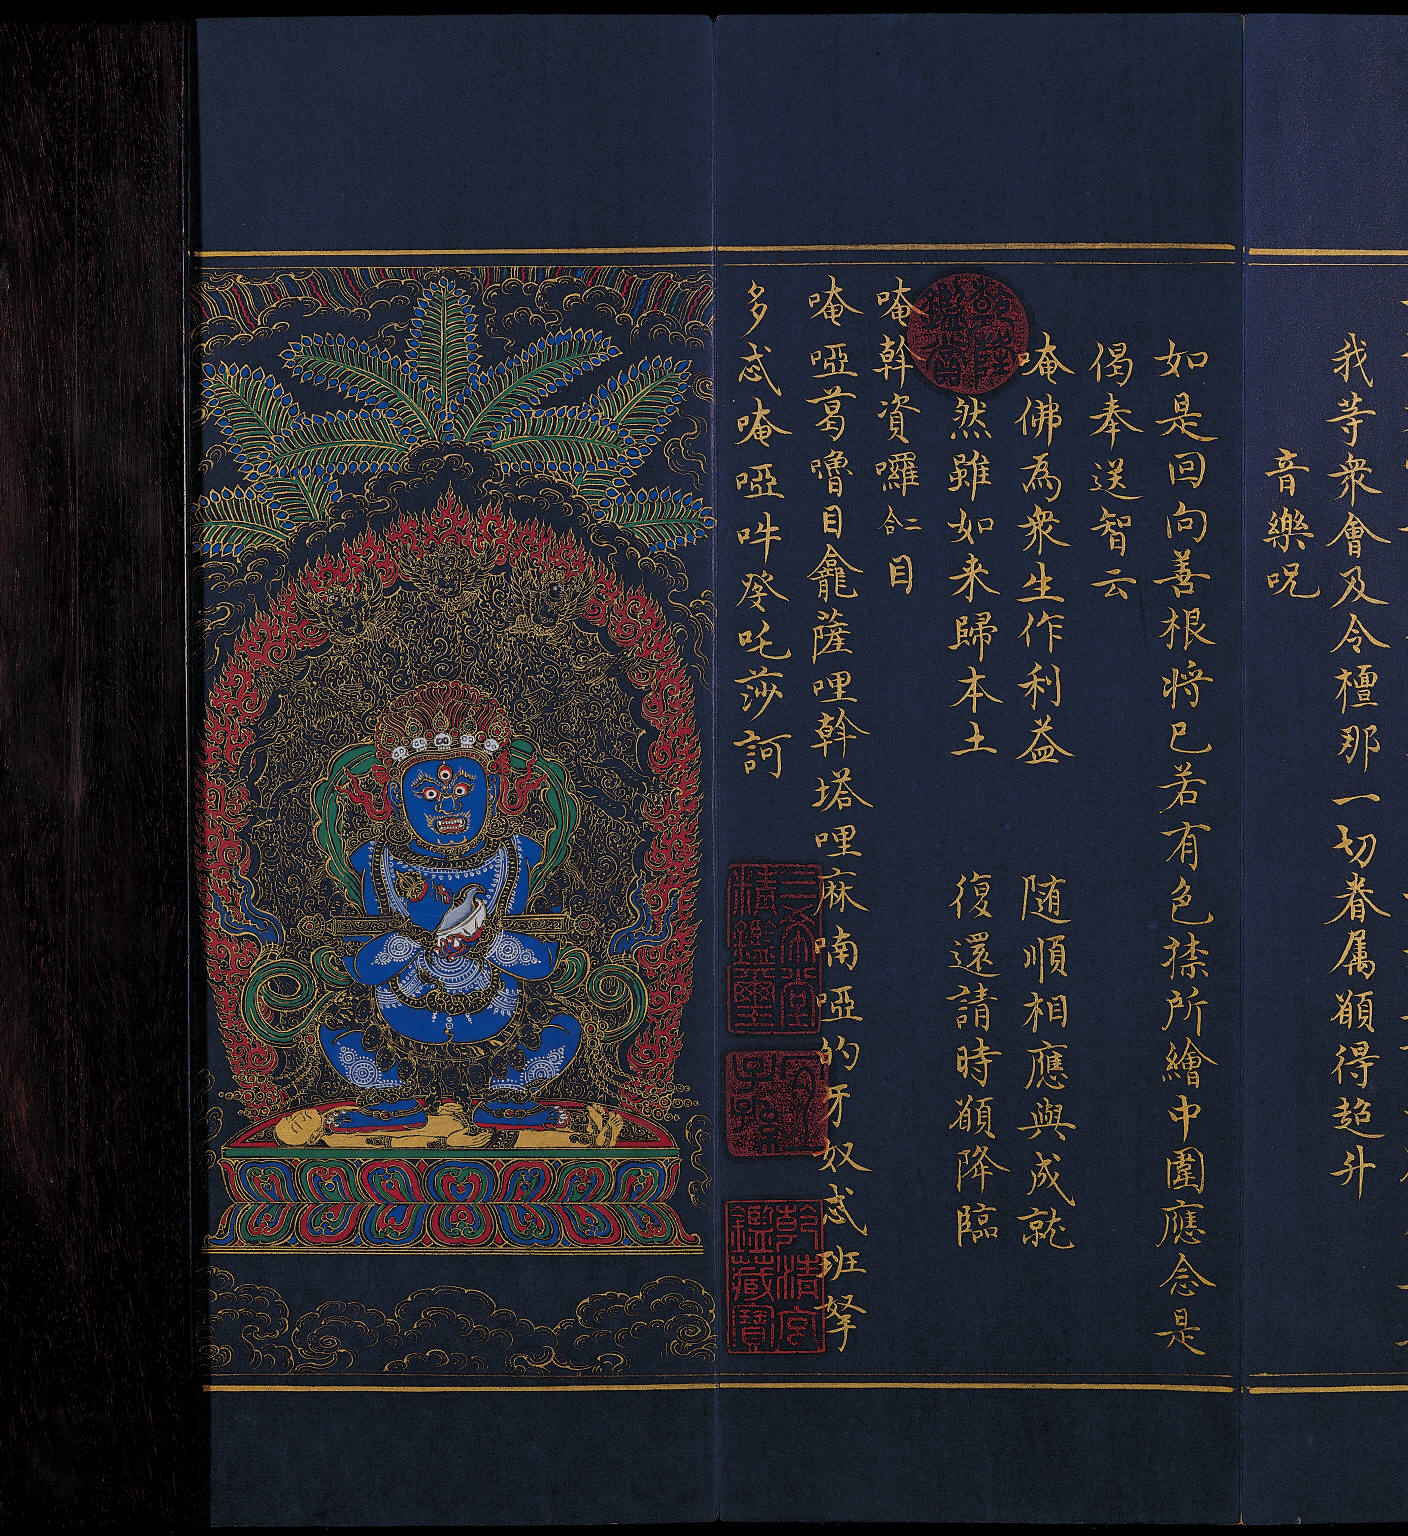 我等衆會及令檀那一切眷属願得超升
音樂呪
如是回向善根將已若有色㯲所繪中圍應念是
偈奉送智云
唵佛為衆生作利益　随順相應與成就
然雖如来歸本土　復還請時願降臨
唵斡資囉二合目
唵啞葛嚕目龕薩哩斡塔哩麻喃啞的牙奴忒班拏
多忒唵啞吽癹吒莎訶
乾隆鑑賞
三希堂精鑑璽
宜子孫
乾清宮鑑藏寶